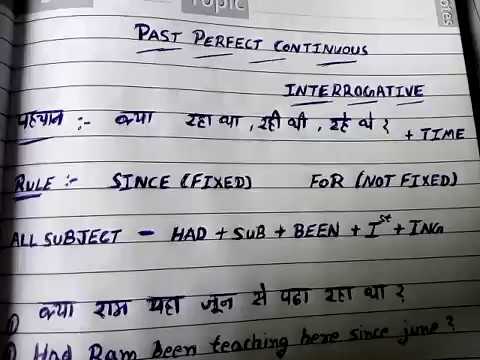 Topic
PAST PERFECT CONTINUOUS
INTERROGATIVE
पहचान :- क्या रहा था, रही थी, रहे थे ? + TIME
RULE :- SINCE (FIXED) FOR (NOT FIXED)
ALL SUBJECT - HAD + SUB + BEEN + Ist + ING
क्या राम यहा जून से पढा रहा था ?
Had Ram been teaching here since june ?